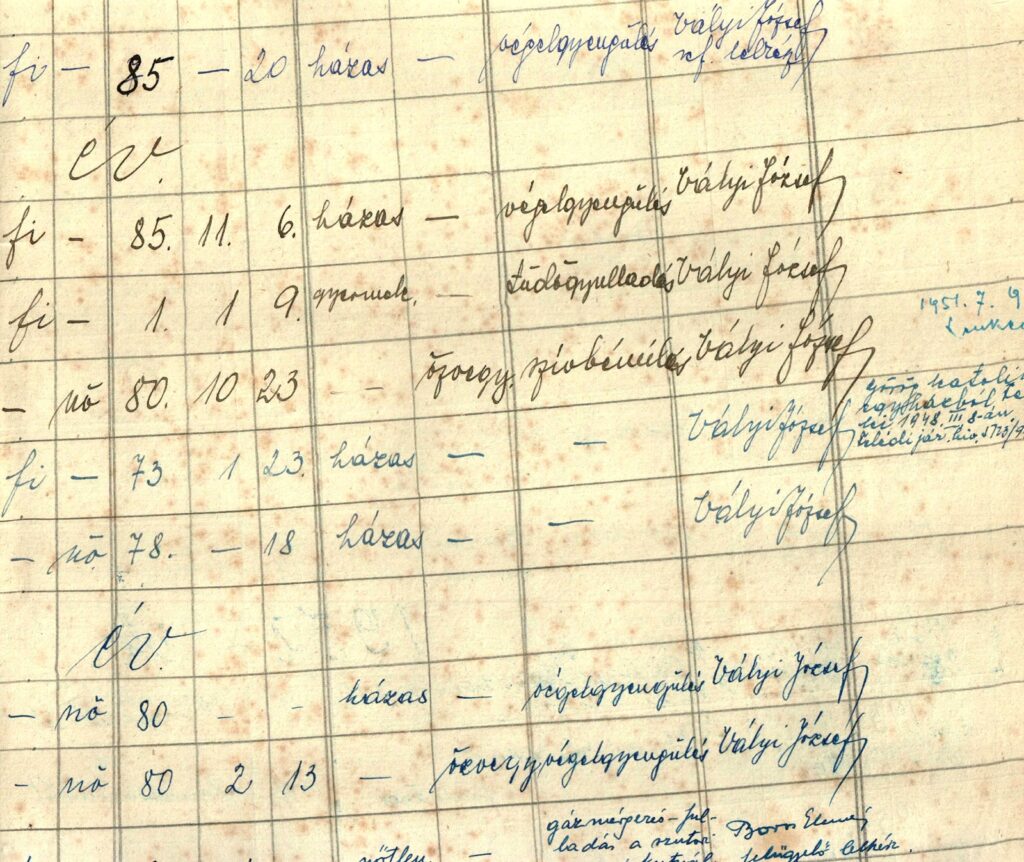 fi — 85 — 20 házas — végelgyengülés Vályi József
ref. lelkész
év.
fi — 85. 11. 6. házas — végelgyengülés Vályi József
fi — 1. 1 9. gyermek. — tüdőgyulladás Vályi József
1951. 7.
— nő 80. 10 23 — özvegy. szívbénulás Vályi József
görög katoli
egyházból
1948. III 8-án
fi — 73 1 23 házas — — Vályi József
— nő 78. — 18 házas — — Vályi József
év.
— nő 80 - - házas — végelgyengülés Vályi József
— nő 80 2 13 — özvegy végelgyengülés Vályi József
gázmérgezés-ful-
ladás a
Boros Elemér
felügyelő lelkész.
nőtlen